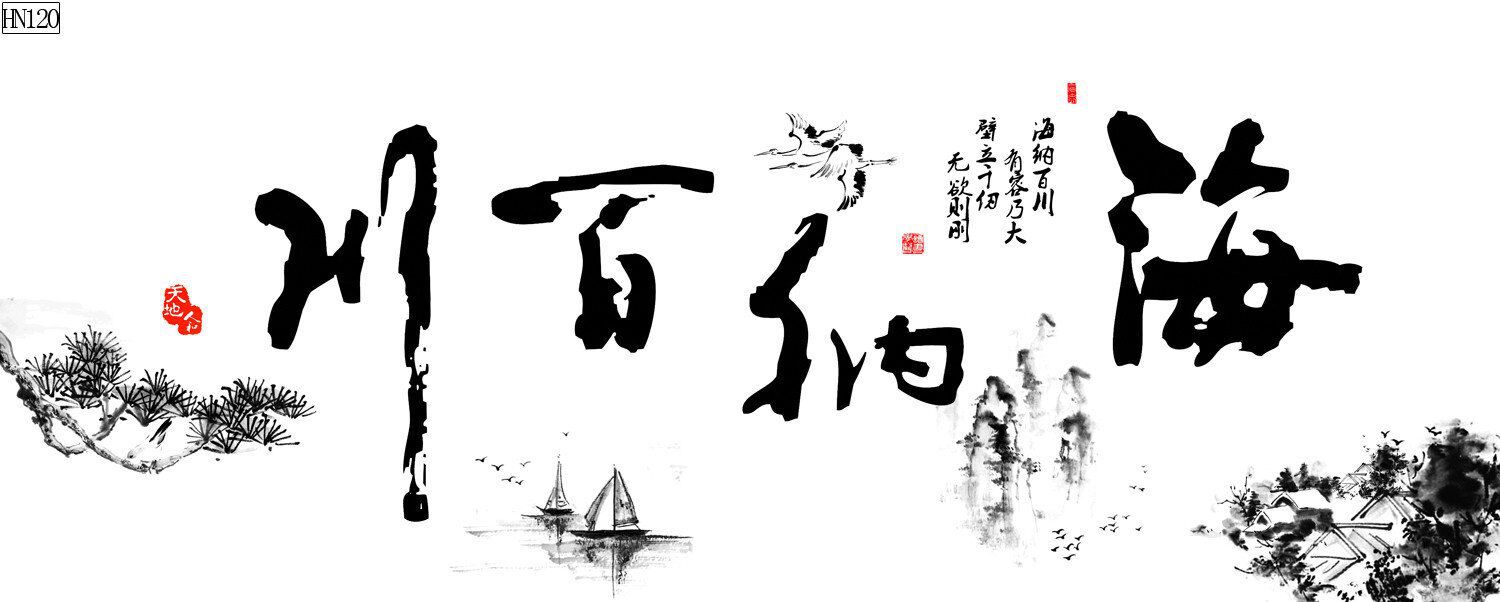 HN120
海纳百川
海纳百川
有容乃大
壁立千仞
无欲则刚
天地
合